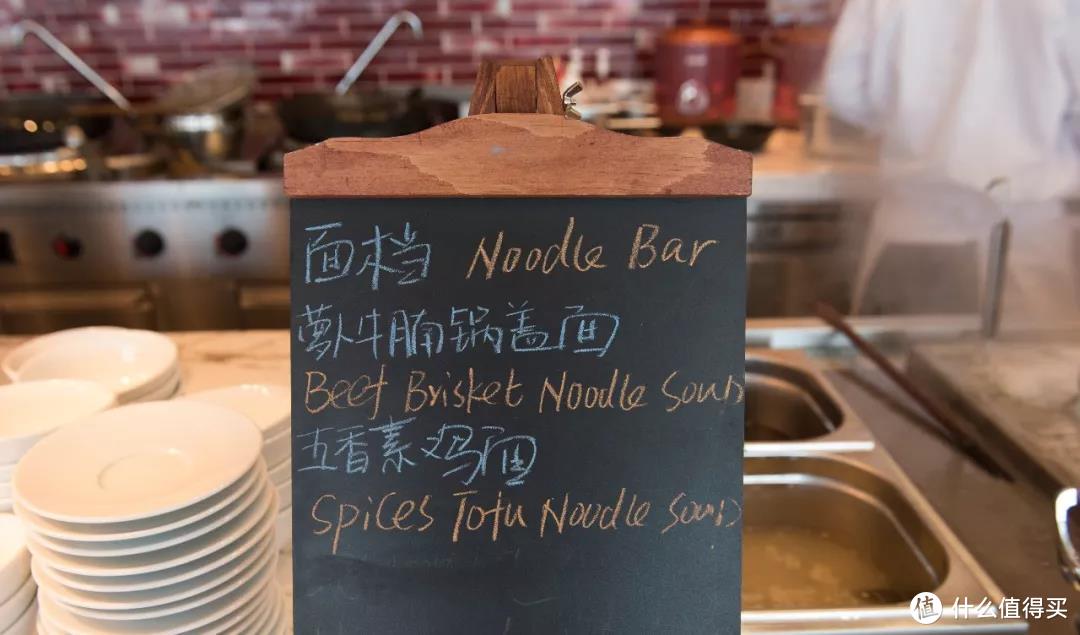 面档 Noodle Bar
萝卜牛腩锅盖面
Beef Brisket Noodle Soup
五香素鸡面
Spices Tofu Noodle Soup
值 什么值得买